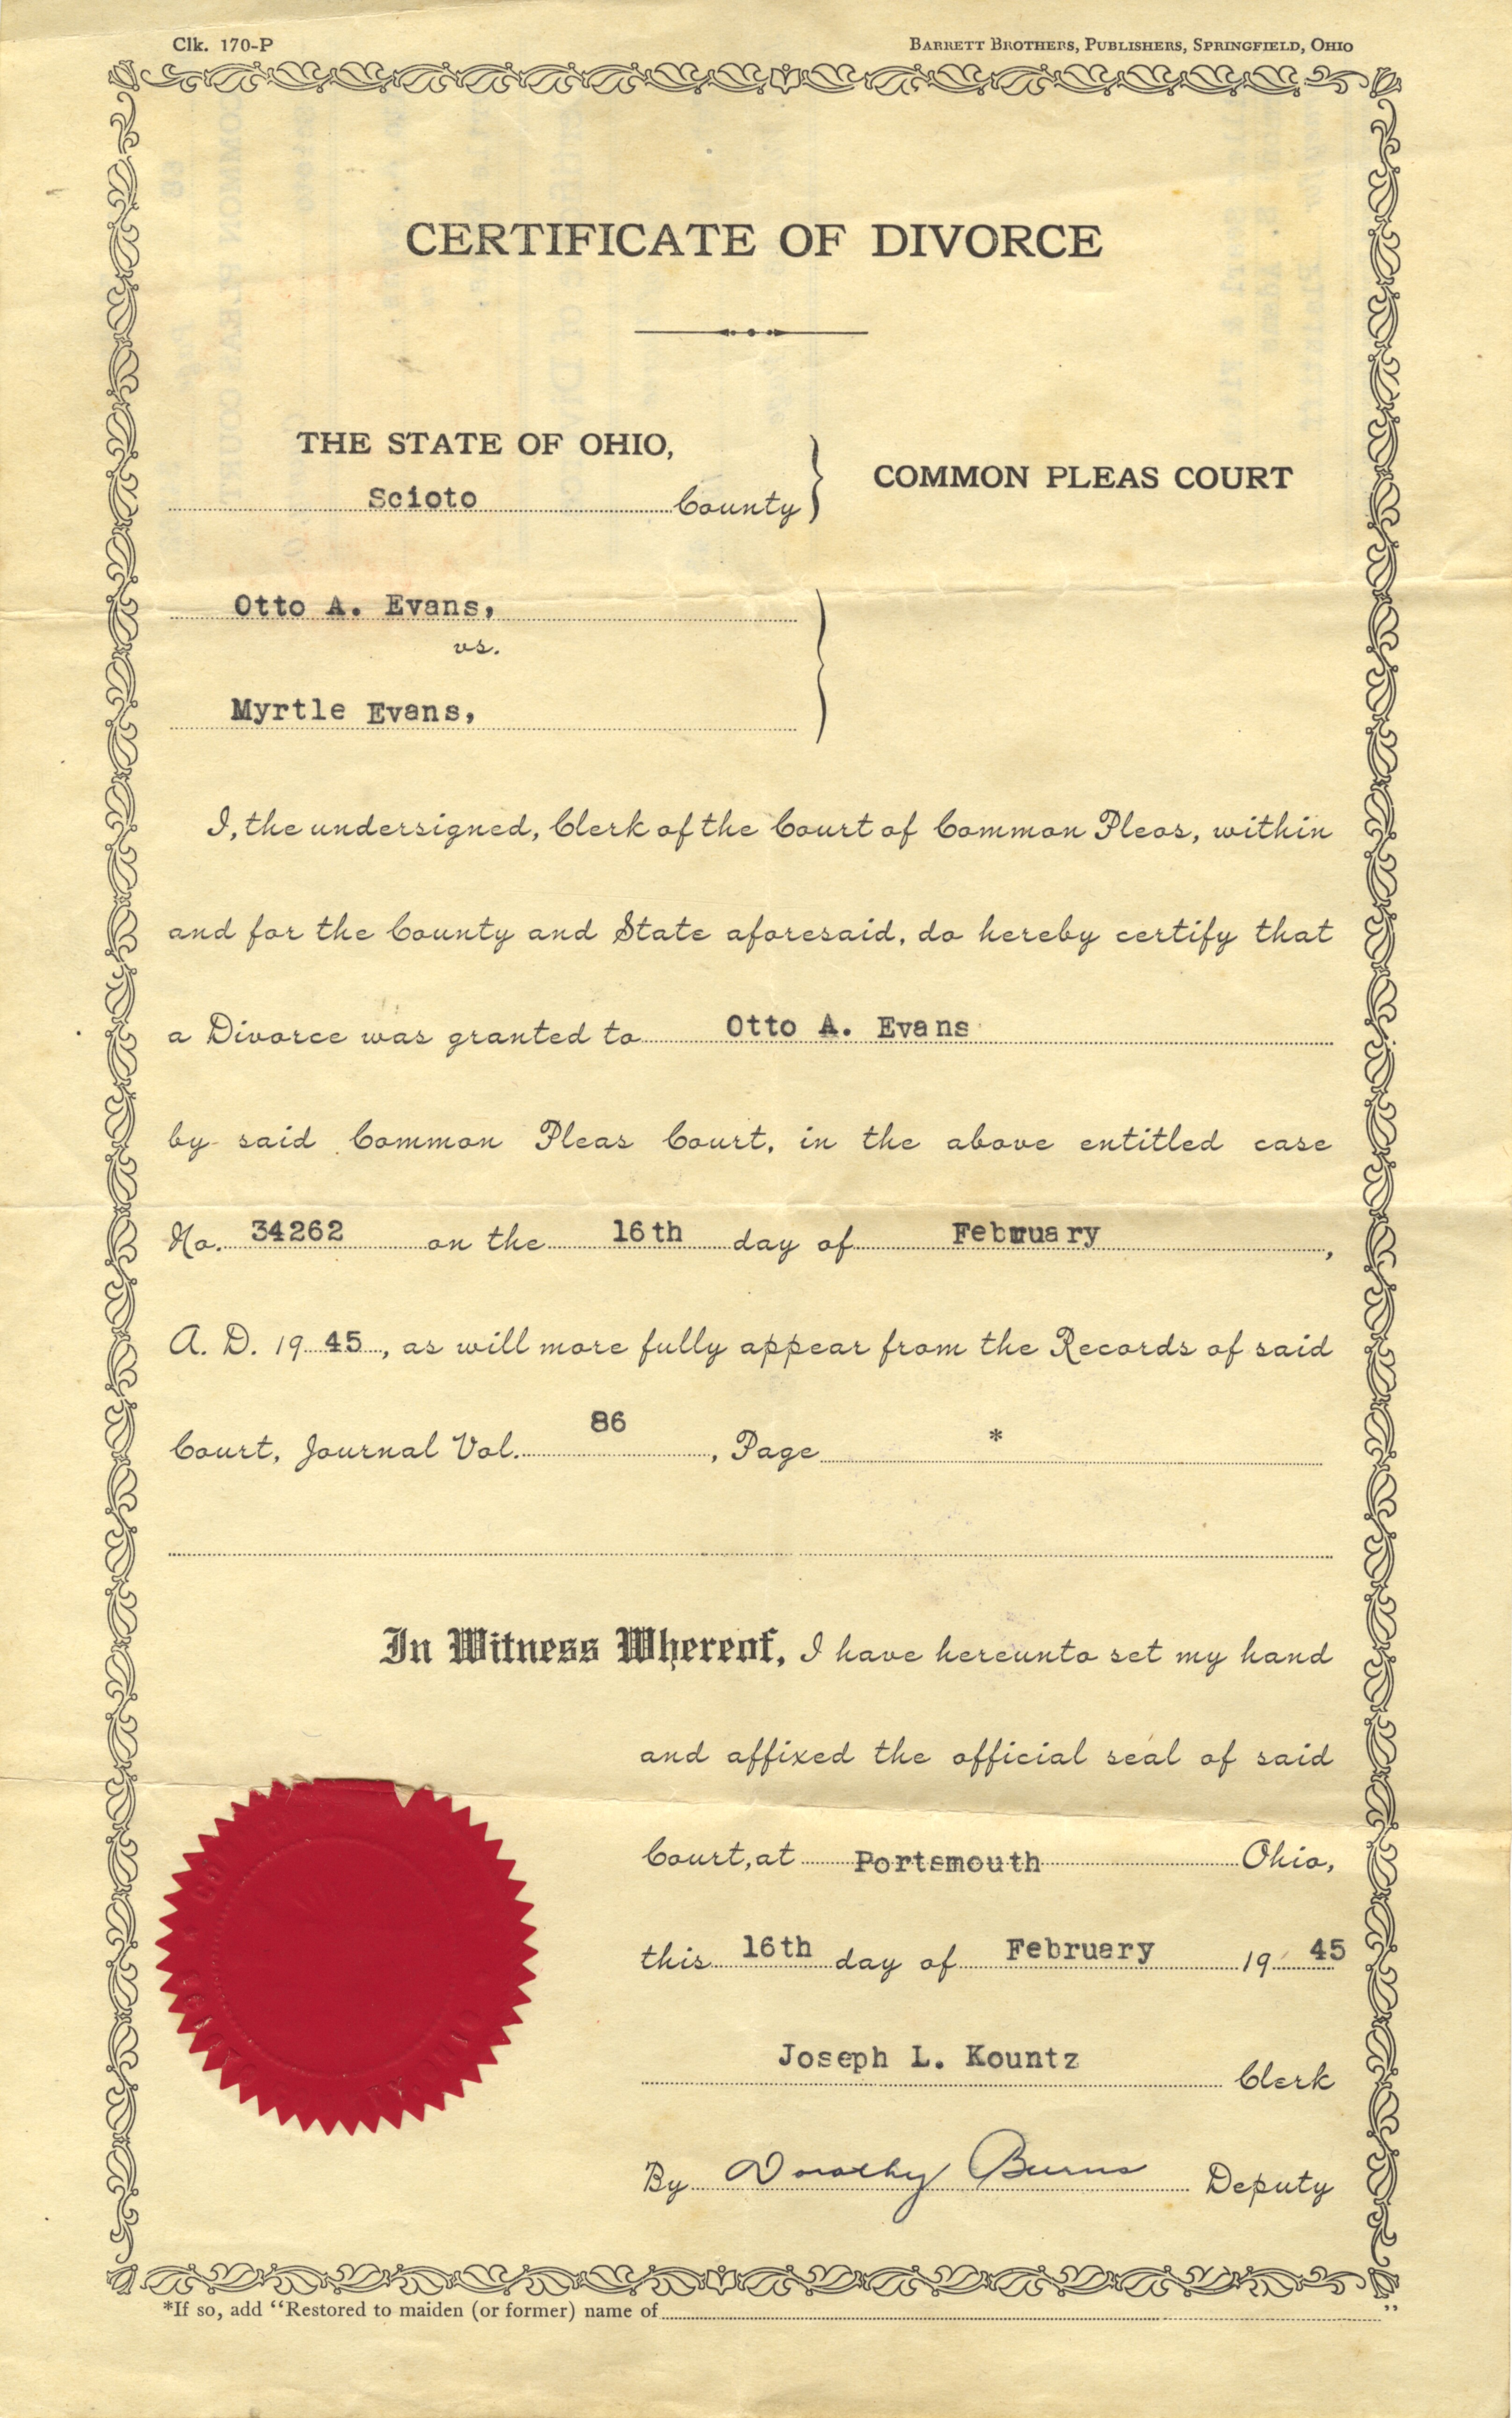 Clk. 170-P
BARRETT BROTHERS, PUBLISHERS, SPRINGFIELD, OHIO
CERTIFICATE OF DIVORCE
THE STATE OF OHIO,
Scioto County
COMMON PLEAS COURT
Otto A. Evans,
vs.
Myrtle Evans,
I, the undersigned, Clerk of the Court of Common Pleas, within
and for the County and State aforesaid, do hereby certify that
a Divorce was granted to Otto A. Evans
by said Common Pleas Court, in the above entitled case
No. 34262 on the 16th day of February,
A. D. 19 45, as will more fully appear from the Records of said
Court, Journal Vol. 86, Page *
In Witness Whereof, I have hereunto set my hand
and affixed the official seal of said
Court, at Portsmouth Ohio,
this 16th day of February 19 45
Joseph L. Kountz Clerk
By Dorothy Burns Deputy
*If so, add "Restored to maiden (or former) name of "